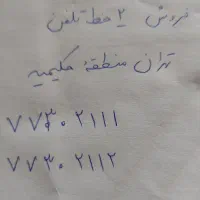 فروش ۲ خط تلفن
تهران منطقه حکیمیه
۷۷۳۰۲۱۱۱
۷۷۳۰۲۱۱۲